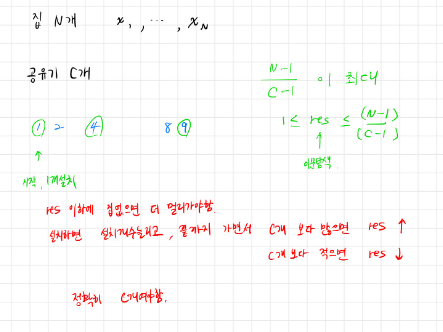 집 N개 x₁, ⋯, x_N
공유기 C개
N-1 / C-1 이 최대
1 ≤ res ≤ (N-1) / (C-1)
이분탐색
① 2 ④ 8 ⑨
시작, 1개설치
res 이하에 집없으면 더 멀리가야함.
설치하면 설치개수늘리고, 끝까지 가면서 C개 보다 많으면 res ↑
C개 보다 적으면 res ↓
정확히 C개여야함.